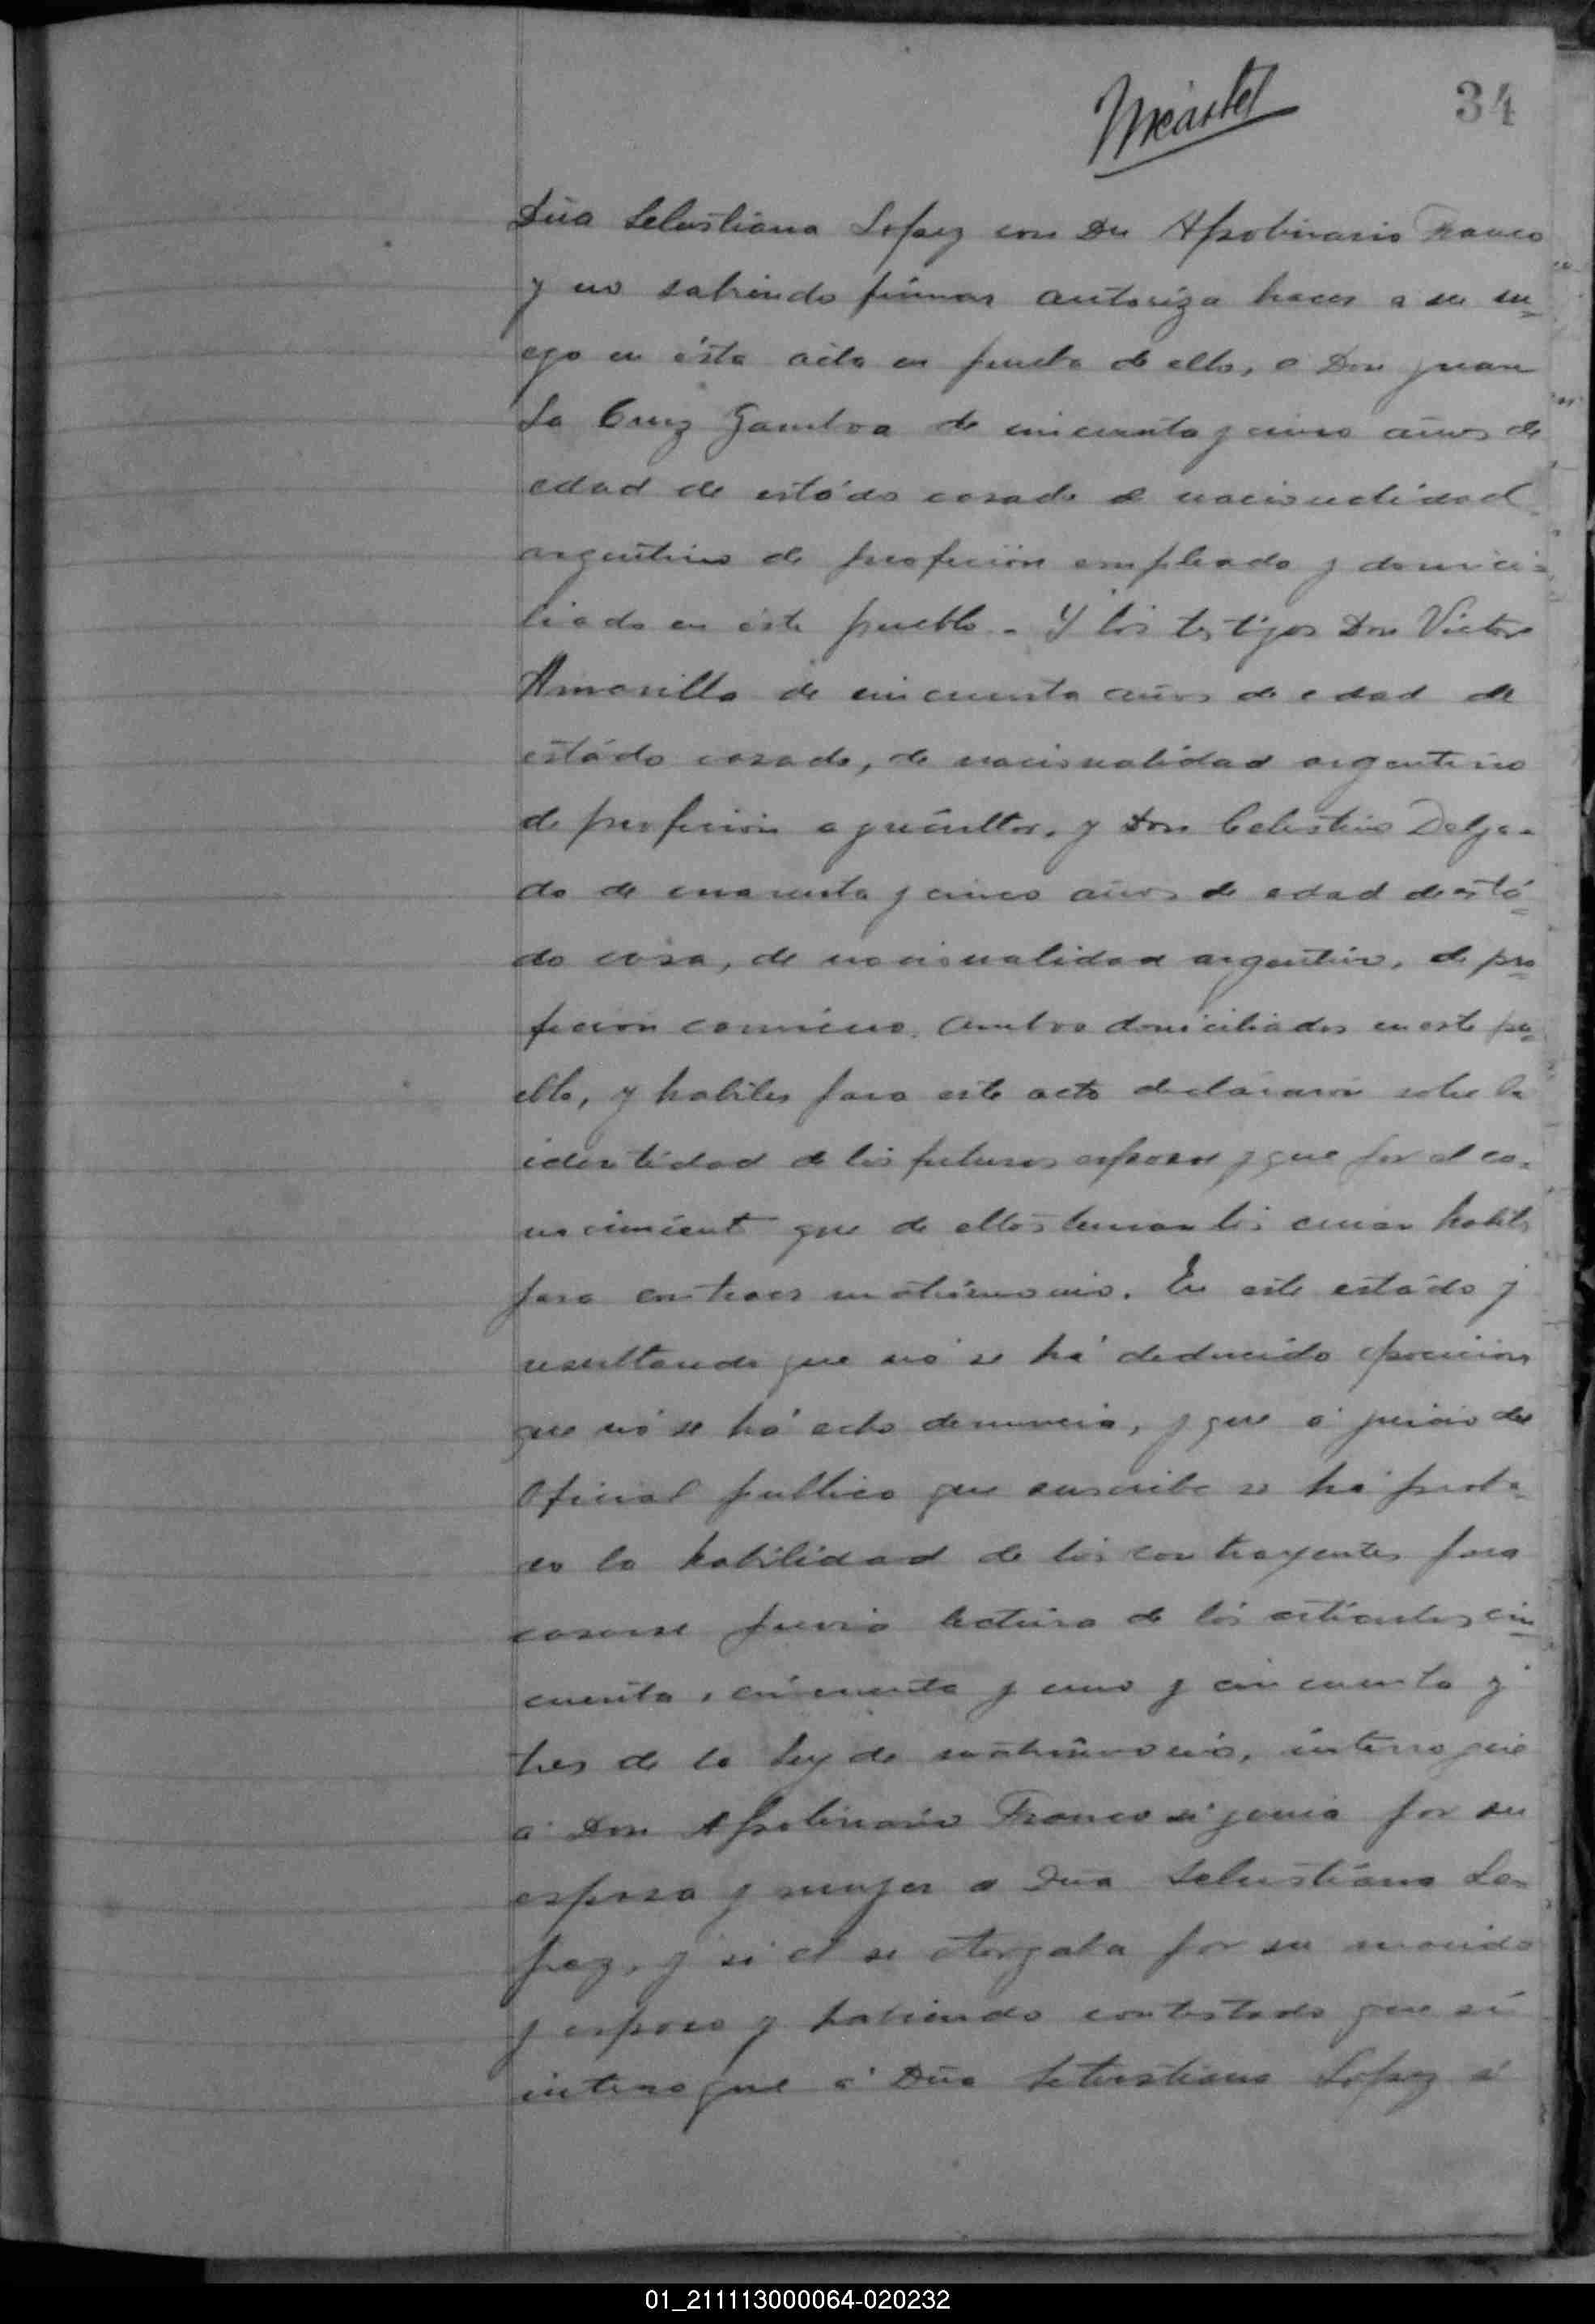 34
Dña Sebastiana Lopez con Dn Apolinario Franco
y no sabiendo firmar autoriza hacer a su ru=
ego en ésta acta en prueba de ello, a Don Juan
La Cruz Gamboa de cincuenta y cinco años de
edad de estádo casado de nacionalidad
argentino de profecion empleado y domici=
liado en este pueblo. Y los testigos Don Victor
Amarilla de cincuenta años de edad de
estádo casado, de nacionalidad argentino
de profecion agricultor, y Don Celestino Delga-
do de cuarenta y cinco años de edad de está=
do casa, de nacionalidad argentino, de pro=
fecion comicion. Ambos domiciliados en este pu=
eblo, y habiles para este acto declararon sobre la
identidad de los futuros esposos y que por el co-
nocimient que de ellos tienen los creian habiles
para contraer matrimonio. En este estádo y
resultando que nó se há deducido oposicion
que nó se há echo denuncia, y que á juicio del
Oficial publico que suscribe se há proba-
do la habilidad de los contrayentes para
casarse previa lectura de los articulos cin=
cuenta, cincuenta y uno y cincuenta y
tres de la Ley de matrimonio, interrogué
a Don Apolinario Franco si queria por su
esposa y mujer a Dña Sebastiana Lo-
pez, y si el se otorgaba por su marido
y esposo y habiendo contestado que si
interrogue á Dña Sebastiana Lopez si
01_211113000064-020232